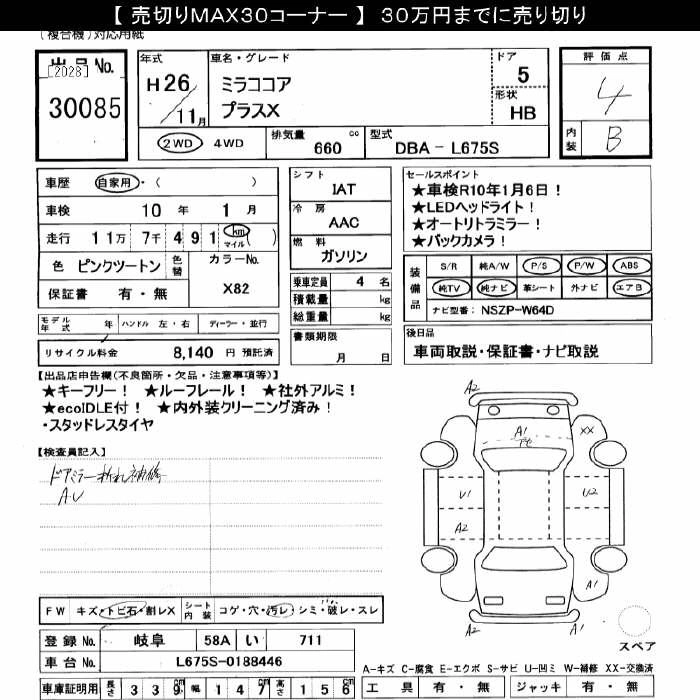 【 売切りMAX30コーナー 】 30万円までに売り切り
(複合機)対応用紙
出品No.
[2028]
30085
年式
H 26
/
11月
車名・グレード
ミラココア
プラスX
ドア
5
形状
HB
評価点
4
内装
B
2WD 4WD
排気量
660 cc
型式
DBA - L675S
車歴 自家用・( )
車検 10 年 1 月
走行 11万 7千 4 9 1 km マイル ( )
色 ピンクツートン 色替 カラーNo.
保証書 有・無 X82
シフト
IAT
冷房
AAC
燃料
ガソリン
乗車定員 4 名
積載量 kg
総重量 kg
書類期限
月 日
セールスポイント
★車検R10年1月6日！
★LEDヘッドライト！
★オートリトラミラー！
★バックカメラ！
装備品
S/R 純A/W P/S P/W ABS
純TV 純ナビ 革シート 外ナビ エアB
ナビ型番: NSZP-W64D
後日品
車両取説・保証書・ナビ取説
モデル年式 年 ハンドル 左・右 ディーラー・並行
リサイクル料金 8,140 円 預託済
【出品店申告欄(不良箇所・欠品・注意事項等)】
★キーフリー！ ★ルーフレール！ ★社外アルミ！
★ecoIDLE付！ ★内外装クリーニング済み！
・スタッドレスタイヤ
【検査員記入】
ドアミラー折れ補修
A.U
A2
A1
XX
U1
U2
A2
A1
A2
A1
スペア
FW キズ・トビ石・割レX シート内装 コゲ・穴・汚レ・シミ・破レ・スレ
登録No. 岐阜 58A い 711
車台No. L675S-0188446
車庫証明用 長さ 3 3 9 cm 幅 1 4 7 cm 高さ 1 5 6 cm
A-キズ C-腐食 E-エクボ S-サビ U-凹ミ W-補修 XX-交換済
工具 有・無 ジャッキ 有・無